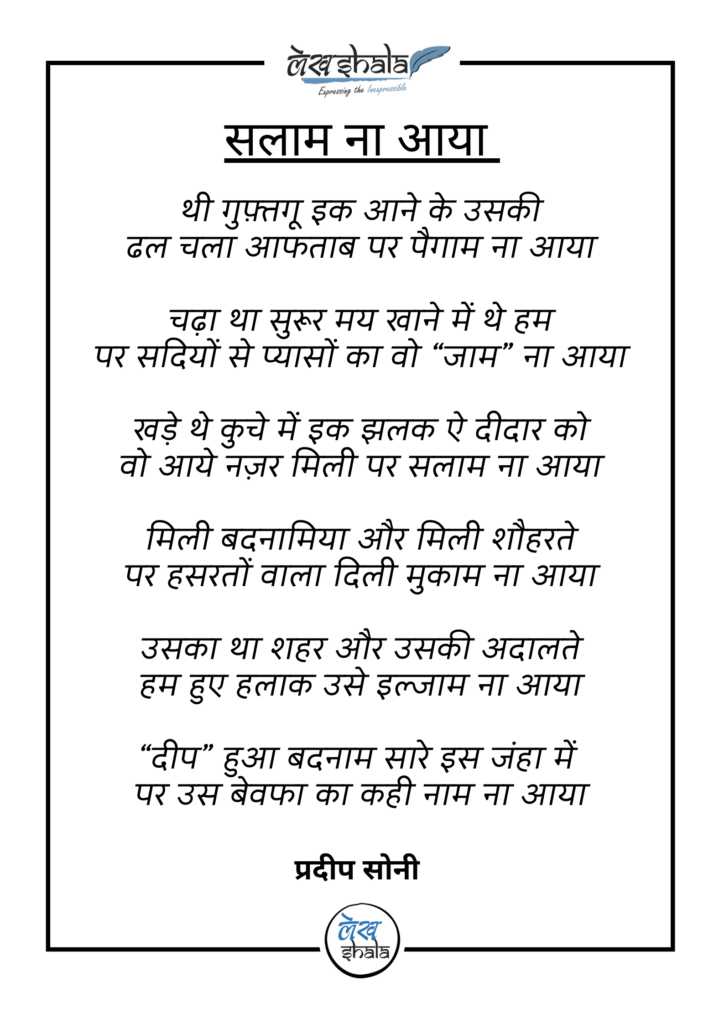 लेखshala
Expressing the Inexpressible
सलाम ना आया
थी गुफ़्तगू इक आने के उसकी
ढल चला आफताब पर पैगाम ना आया
चढ़ा था सुरूर मय खाने में थे हम
पर सदियों से प्यासों का वो “जाम” ना आया
खड़े थे कुचे में इक झलक ऐ दीदार को
वो आये नज़र मिली पर सलाम ना आया
मिली बदनामिया और मिली शौहरते
पर हसरतों वाला दिली मुकाम ना आया
उसका था शहर और उसकी अदालते
हम हुए हलाक उसे इल्जाम ना आया
“दीप” हुआ बदनाम सारे इस जंहा में
पर उस बेवफा का कही नाम ना आया
प्रदीप सोनी
लेख
shala